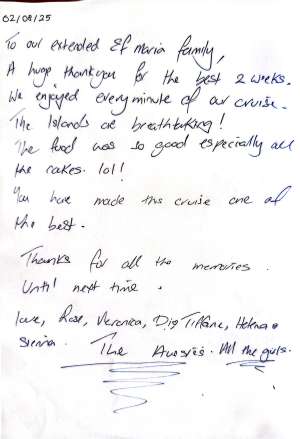 02/09/25
To our extended Ef Maria family,
A huge thankyou for the best 2 weeks.
We enjoyed every minute of our cruise.
The Islands are breathtaking!
The food was so good especially all
the cakes. lol!
You have made this cruise one of
the best.
Thanks for all the memories.
Until next time.
love, Rose, Veronica, Tiffany, Helena &
Sienna. The Aussies. All the girls.